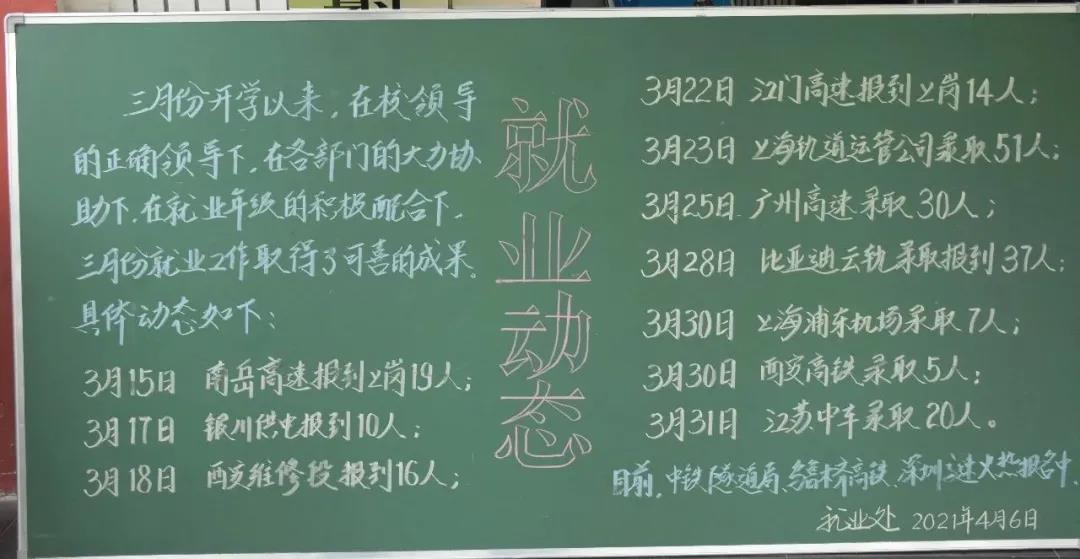 三月份开学以来，在校领导
的正确领导下，在各部门的大力协
助下，在就业年级的积极配合下，
三月份就业工作取得了可喜的成果。
具体动态如下：
3月15日 南岳高速报到上岗19人；
3月17日 银川供电报到10人；
3月18日 西安维修段报到16人；
就业动态
3月22日 江门高速报到上岗14人；
3月23日 上海轨道运管公司录取51人；
3月25日 广州高速录取30人；
3月28日 比亚迪云轨录取报到37人；
3月30日 上海浦东机场录取7人；
3月30日 西安高铁录取5人；
3月31日 江苏中车录取20人。
目前，中铁隧道局、乌鲁木齐高铁、深圳 火热报名中。
就业处 2021年4月6日